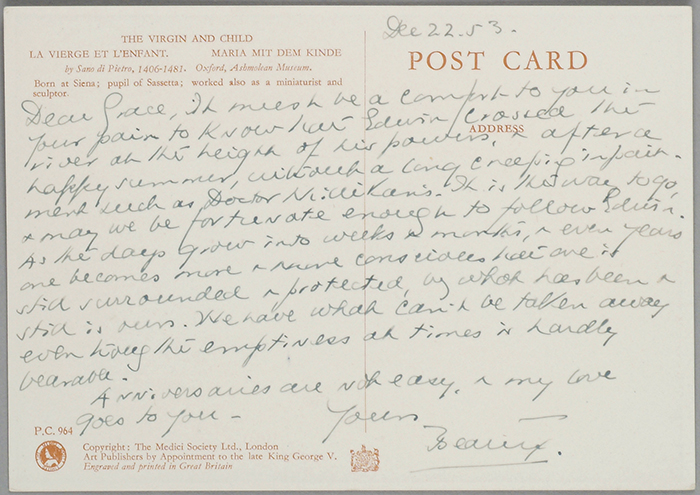 THE VIRGIN AND CHILD
LA VIERGE ET L'ENFANT. MARIA MIT DEM KINDE
by Sano di Pietro, 1406-1481. Oxford, Ashmolean Museum.
Born at Siena; pupil of Sassetta; worked also as a miniaturist and
sculptor.
Dec 22. 53.
POST CARD
ADDRESS
Dear Grace, It must be a comfort to you in
your pain to know that Edwin crossed the
river at the height of his powers, & after a
happy summer, without a long creeping impair-
ment such as Doctor Millikan's. It is the way to go,
& may we be fortunate enough to follow Edwin.
As the days grow into weeks & months, & even years
one becomes more & more conscious that one is
still surrounded & protected, by what has been &
still is ours. We have what can't be taken away
even though the emptiness at times is hardly
bearable.
Anniversaries are not easy, & my love
goes to you —
Yours
P.C. 964
Copyright: The Medici Society Ltd., London
Art Publishers by Appointment to the late King George V.
Engraved and printed in Great Britain